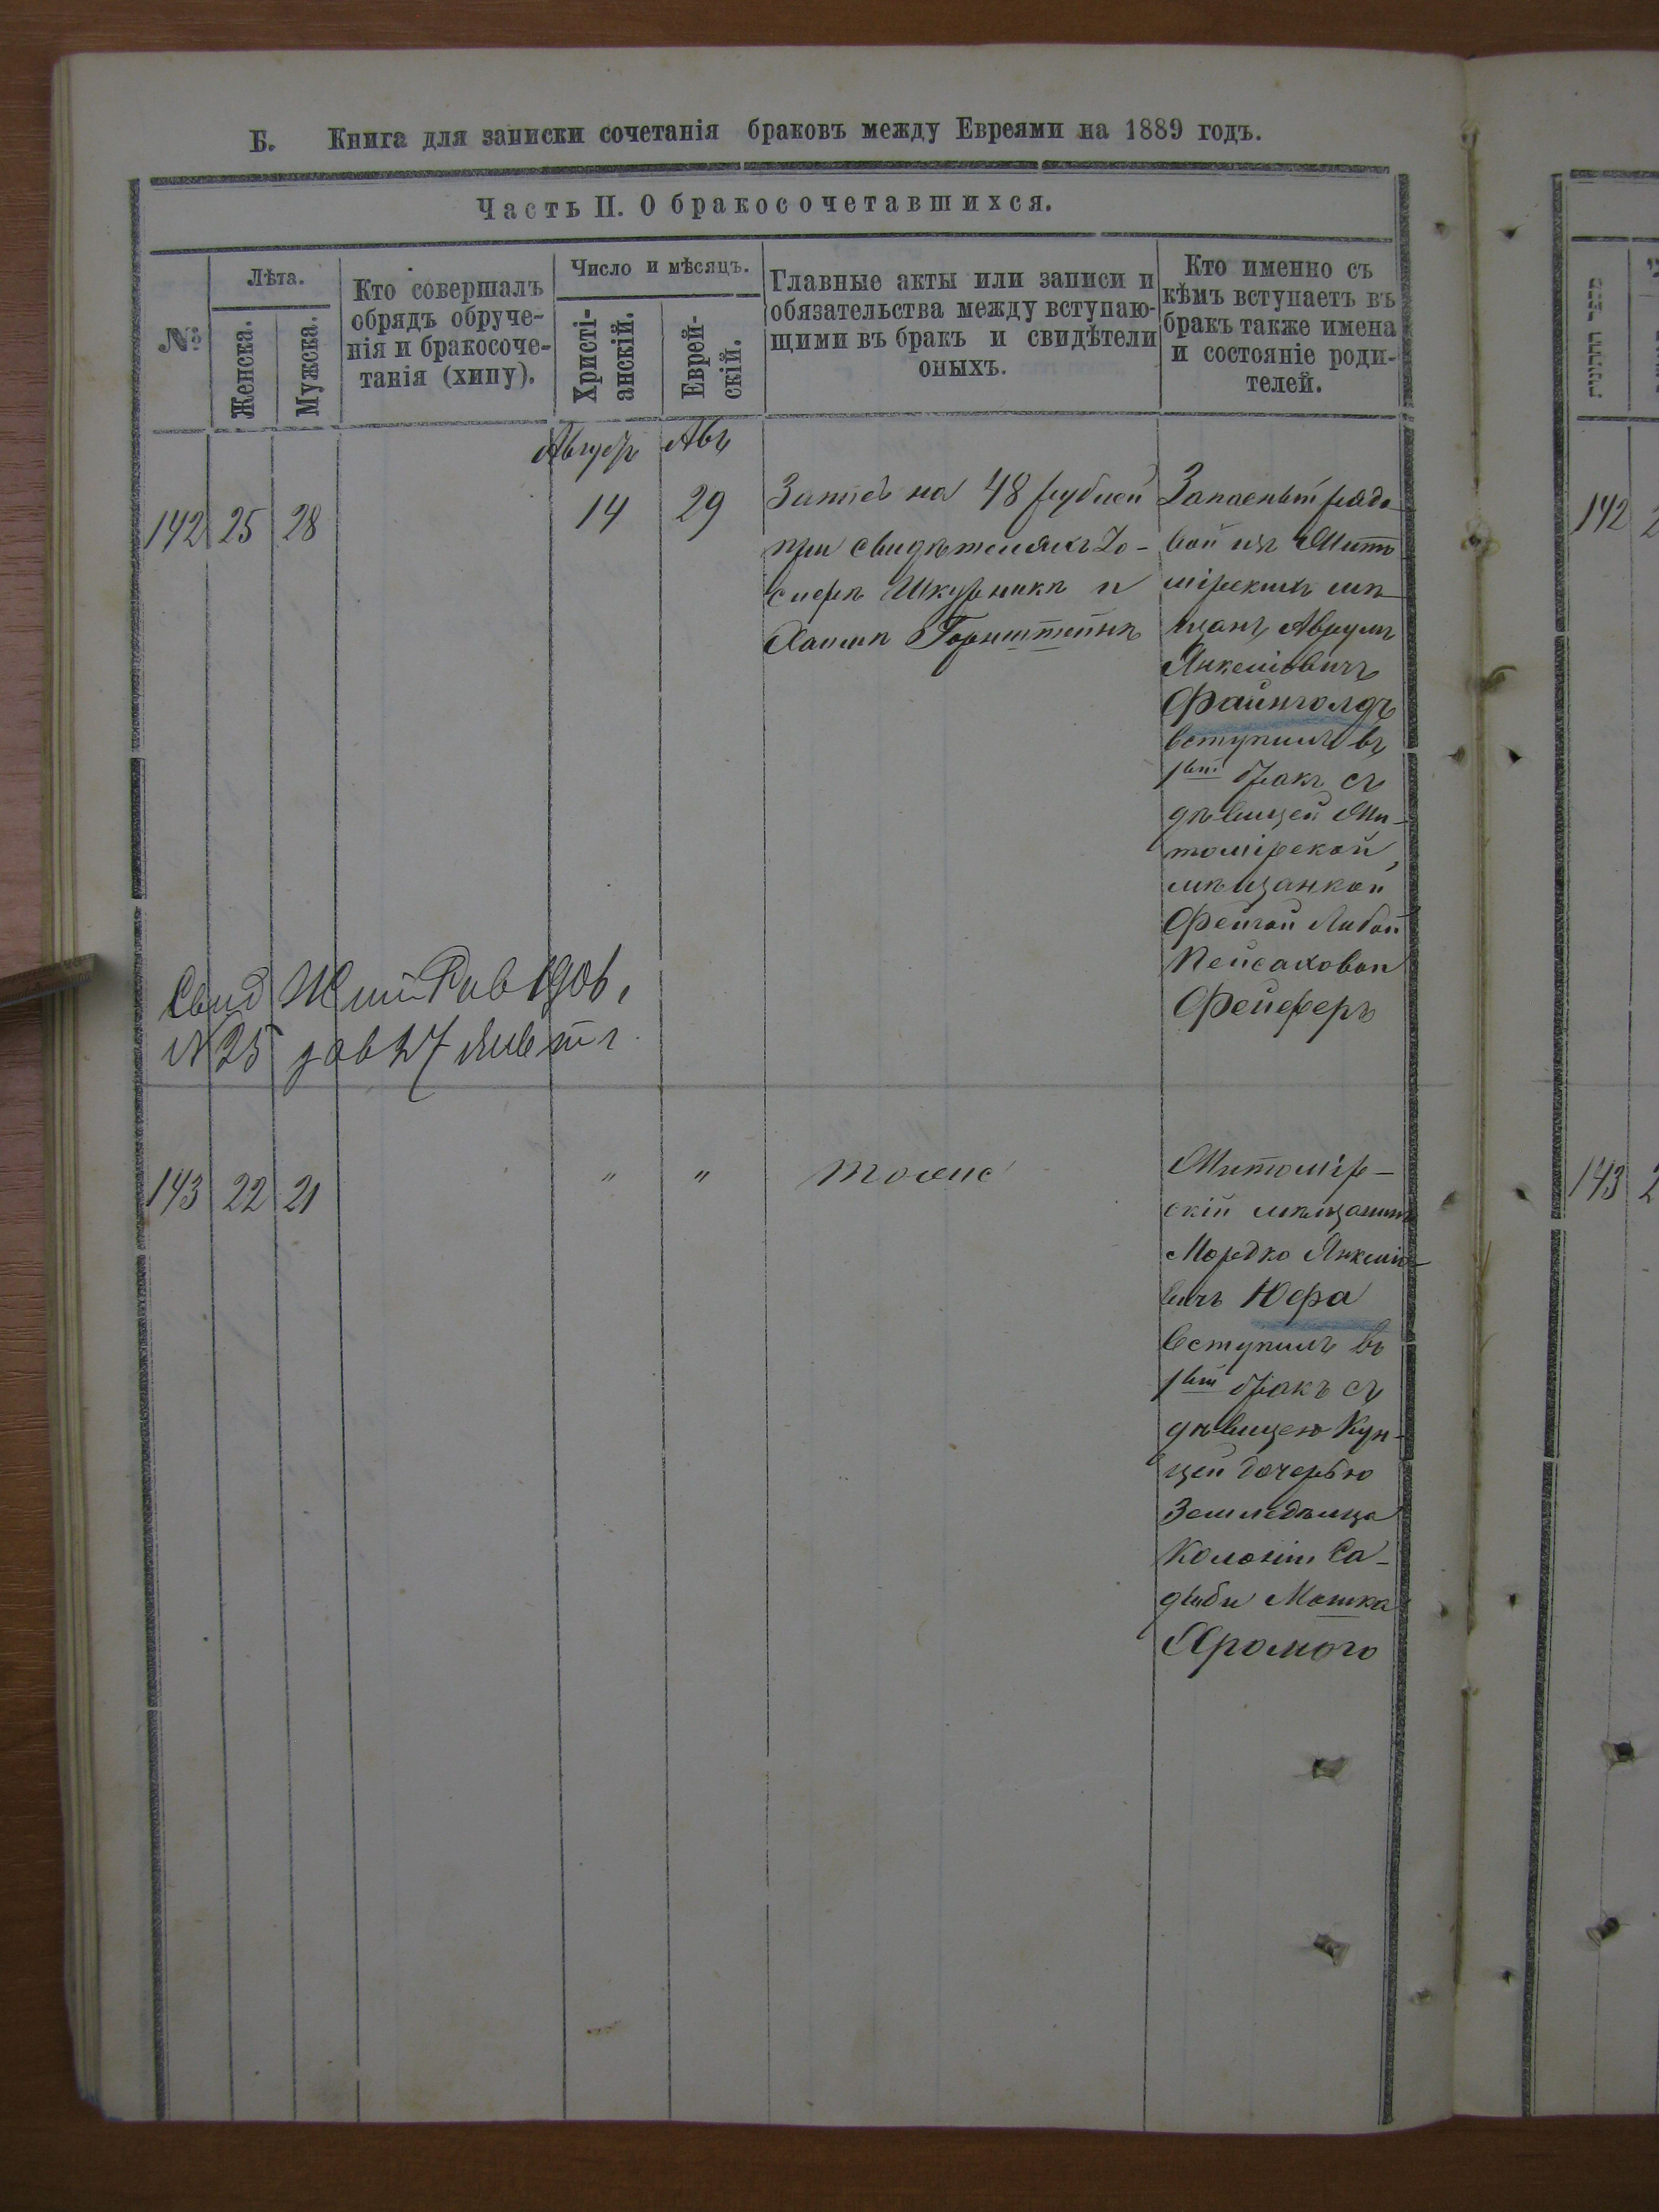 Б. Книга для записки сочетанія браковъ между Евреями на 1889 годъ.
Часть II. О бракосочетавшихся.
№
Лѣта.
Женска.
Мужска.
Кто совершалъ
обрядъ обруче-
нія и бракосоче-
танія (хипу).
Число и мѣсяцъ.
Христі-
анскій.
Еврей-
скій.
Главные акты или записи и
обязательства между вступаю-
щими въ бракъ и свидѣтели
оныхъ.
Кто именно съ
кѣмъ вступаетъ въ
бракъ также имена
и состояніе роди-
телей.
Августъ Авъ
142 25 28 14 29
Запись на 48 рублей
при свидѣтеляхъ Іо-
сифѣ Шкурникѣ и
Хаимѣ Горнштейнѣ
Запасный рядо-
вой изъ Жито-
мірскихъ мѣ-
щанъ Аврумъ
Янкелiовичъ
Файнголдъ
вступилъ въ
1вый бракъ съ
дѣвицей Жи-
томірской
мѣщанкой
Фейгой Либой
Пейсаховой
Фейферъ
Свид 1906,
№ 25 27
143 22 21 " " тоже
Житомір-
скій мѣщанинъ
Мордко Янкеліо-
вичъ Юфа
вступилъ въ
1вый бракъ съ
дѣвицею Кун-
цей дочерью
Земледѣльца
Колоніи Са-
дыби Мошка
Хромого
142
143